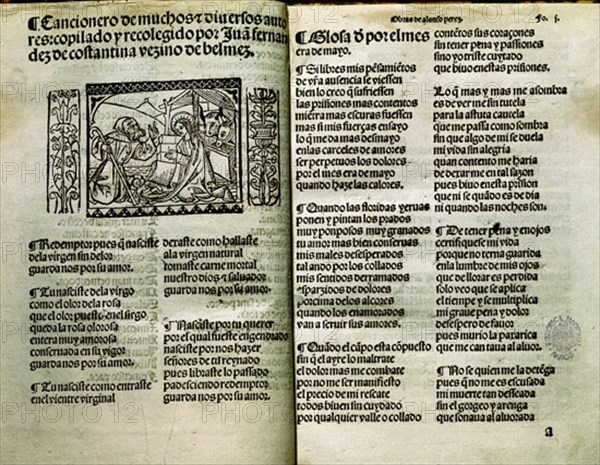 ¶Cancionero de muchos ⁊ diuersos auto
res: copilado y recolegido por Juã fernan
dez de costantina vezino de belmez.
¶Redemptor pues q̃ naciste
dela virgen sin dolor
guarda nos por su amor.
¶Tu naciste dela virgẽ
como el olor dela rosa
que el olor puesto enel sirgo
queda la rosa olorosa
entera muy amorosa
conseruada en su vigor
guarda nos por su amor.
¶Tu naciste como entraste
enel vientre virginal
deraste como hallaste
ala virgen natural
tomaste carne mortal
nuestro dios ⁊ saluador
guarda nos por su amor.
¶Naciste por tu querer
por el qual fueste engendrado
naciste por nos hazer
señores de tu reynado
pues libraste lo passado
padesciendo redemptor
guarda nos por su amor.
Obras de alonso perez.
Fo. j.
¶Glosa d̃ por el mes
era de mayo.
¶Si libres mis pẽsamiẽtos
de vr̃a ausencia se viessen
bien lo creo q̃ suffriessen
las prisiones mas contentos
miẽtra mas escuras fuessen
mas si mis fuerças ensayo
lo q̃ me da mas desmayo
enlas carceles de amores
ser perpetuos los dolores
por el mes era de mayo
quando haze las calores.
¶Quando las floridas yeruas
ponen y pintan los prados
muy pomposos muy granados
tu amor mas bien conseruas
mis males desesperados
talando por los collados
mis sentidos derramados
esparzidos de dolores
porcima delos alcores
quando los enamorados
van a seruir sus amores.
¶Quãdo el cãpo esta cõpuesto
sin q̃ el ayre lo maltrate
el dolor mas me combate
por no me ser manifiesto
el precio de mi rescate
todos biuen sin cuydado
por qualquier valle o collado
contẽtos sus coraçones
sin tener pena y passiones
sino yo triste cuytado
que biuo enestas prisiones.
Lo q̃ mas y mas me asombra
es de ver me sin tutela
para la astuta cautela
que me passa como sombra
sin que algo de mi se duela
mi vida sin alegria
quan contento me haria
de derar me en tal sazon
pues biuo enesta prision
que ni se quãdo es de dia
ni quando las noches son.
¶De tener pena y enojos
certifiquese mi vida
porque no terna guarida
enla lumbre de mis ojos
que de llorar es perdida
solo veo que se aplica
el tiempo y se multiplica
mi graue pena y dolor
desespero de fauor
pues murio la paxarica
que me cantaua al aluor.
¶No se quien me la detẽga
pues q̃ no me es escusada
mi muerte tan desseada
sin el gorgeo y arenga
que sonaua al aluorada
a